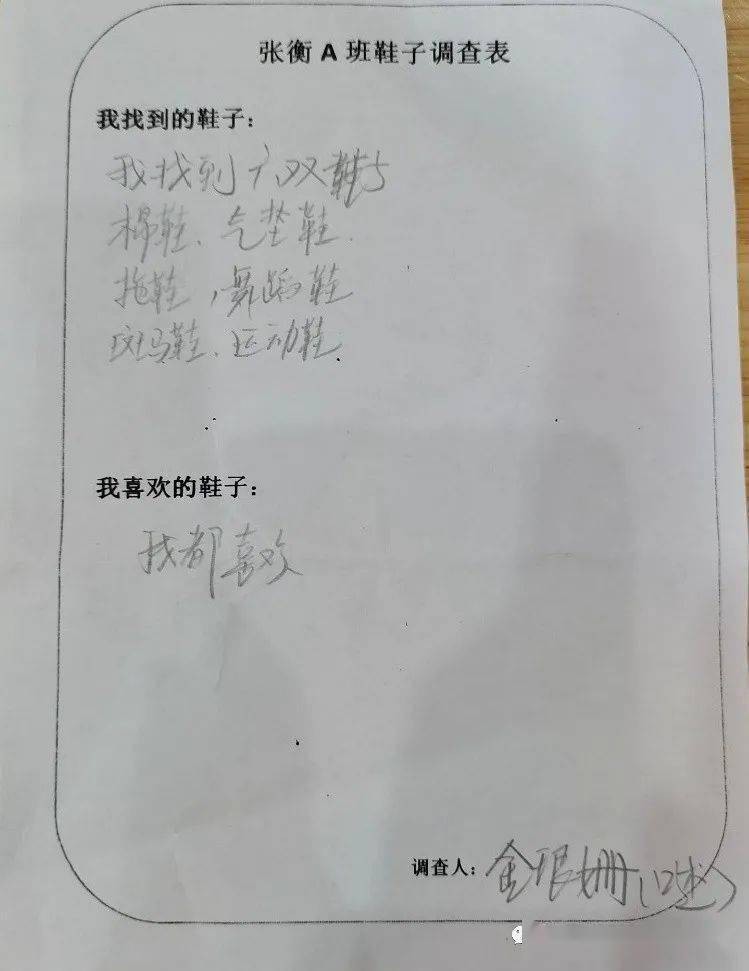 张衡 A 班鞋子调查表
我找到的鞋子：
我找到六双鞋子
棉鞋、气垫鞋.
拖鞋，舞蹈鞋
斑马鞋、运动鞋
我喜欢的鞋子：
我都喜欢
调查人：金珢姗（口述）